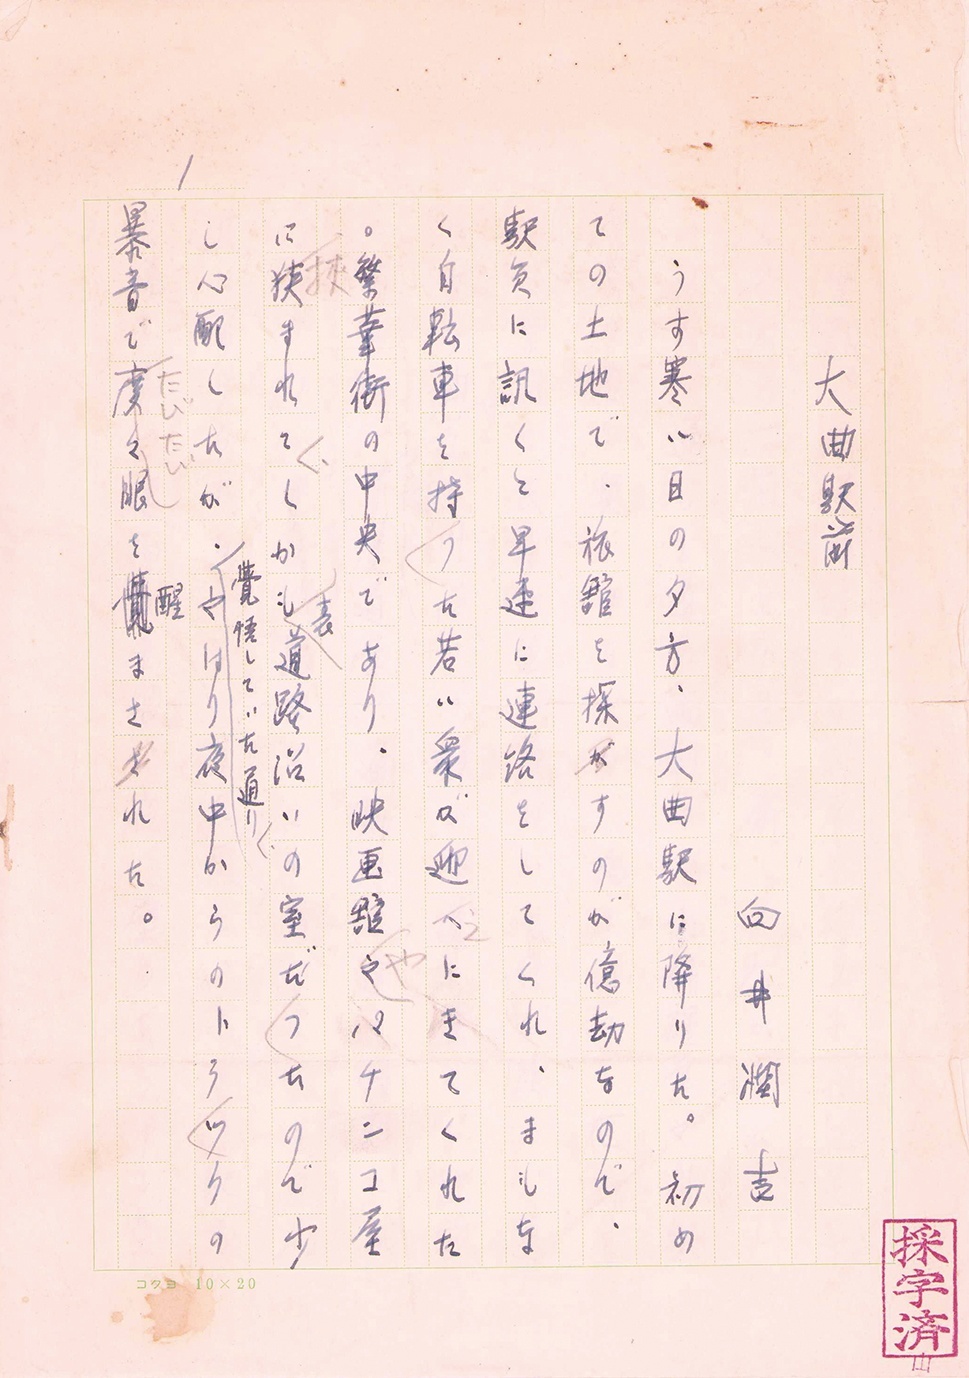 1
大曲駅前
向井潤吉
うす寒い日の夕方、大曲駅に降りた。初め
ての土地で、旅舘を探がすのが億劫なので、
駅員に訊くと早速に連絡をしてくれ、まもな
く自転車を持った若い衆が迎へにきてくれた
え
。繁華街の中央であり、映画舘やパチンコ屋
や
に狭まれてしかも道路沿いの室だったので少
挟
表
し心配したが、やはり夜中からのトラックの
覚悟していた通り
暴音で度々眼を覚まさされた。
たびたび
醒
コクヨ 10×20
採字済
山